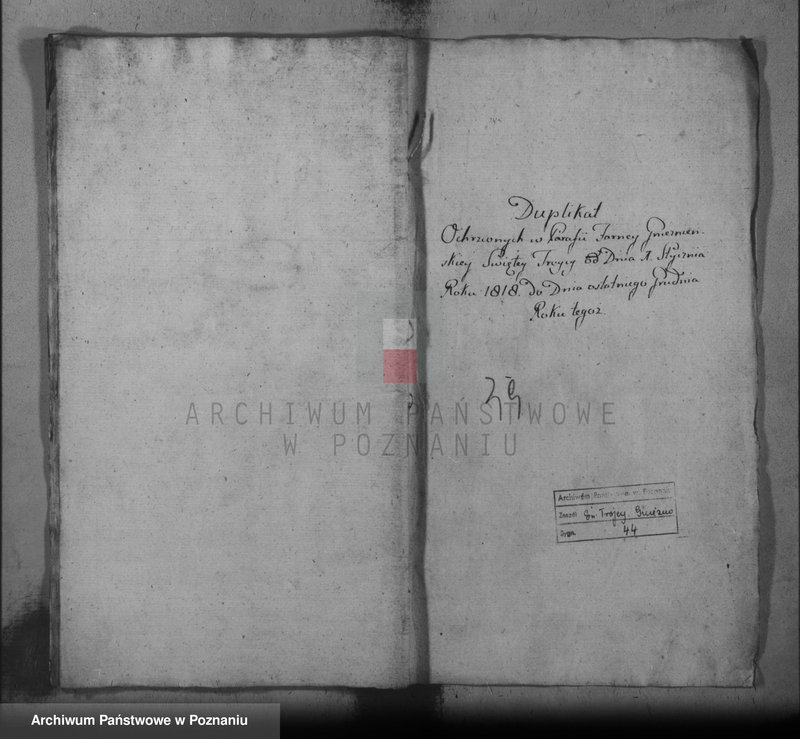 Duplikat
Ochrzconych w Parafii Farney Gnieznień-
skiey Swiętey Troycy od Dnia 1. Stycznia
Roku 1818. do Dnia ostatniego Grudnia
Roku tegoż.
ARCHIWUM PAŃSTWOWE
W POZNANIU
Archiwum Państwowe w Poznaniu
Zespół Św. Trójcy, Gniezno
Sygn. 44
Archiwum Państwowe w Poznaniu